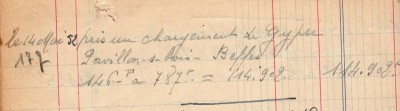 le 14 Mai 52 pris un chargement de Gypse
177 Pavillon-s-bois - Beffes
146T à 787F = 114.902 114.902F